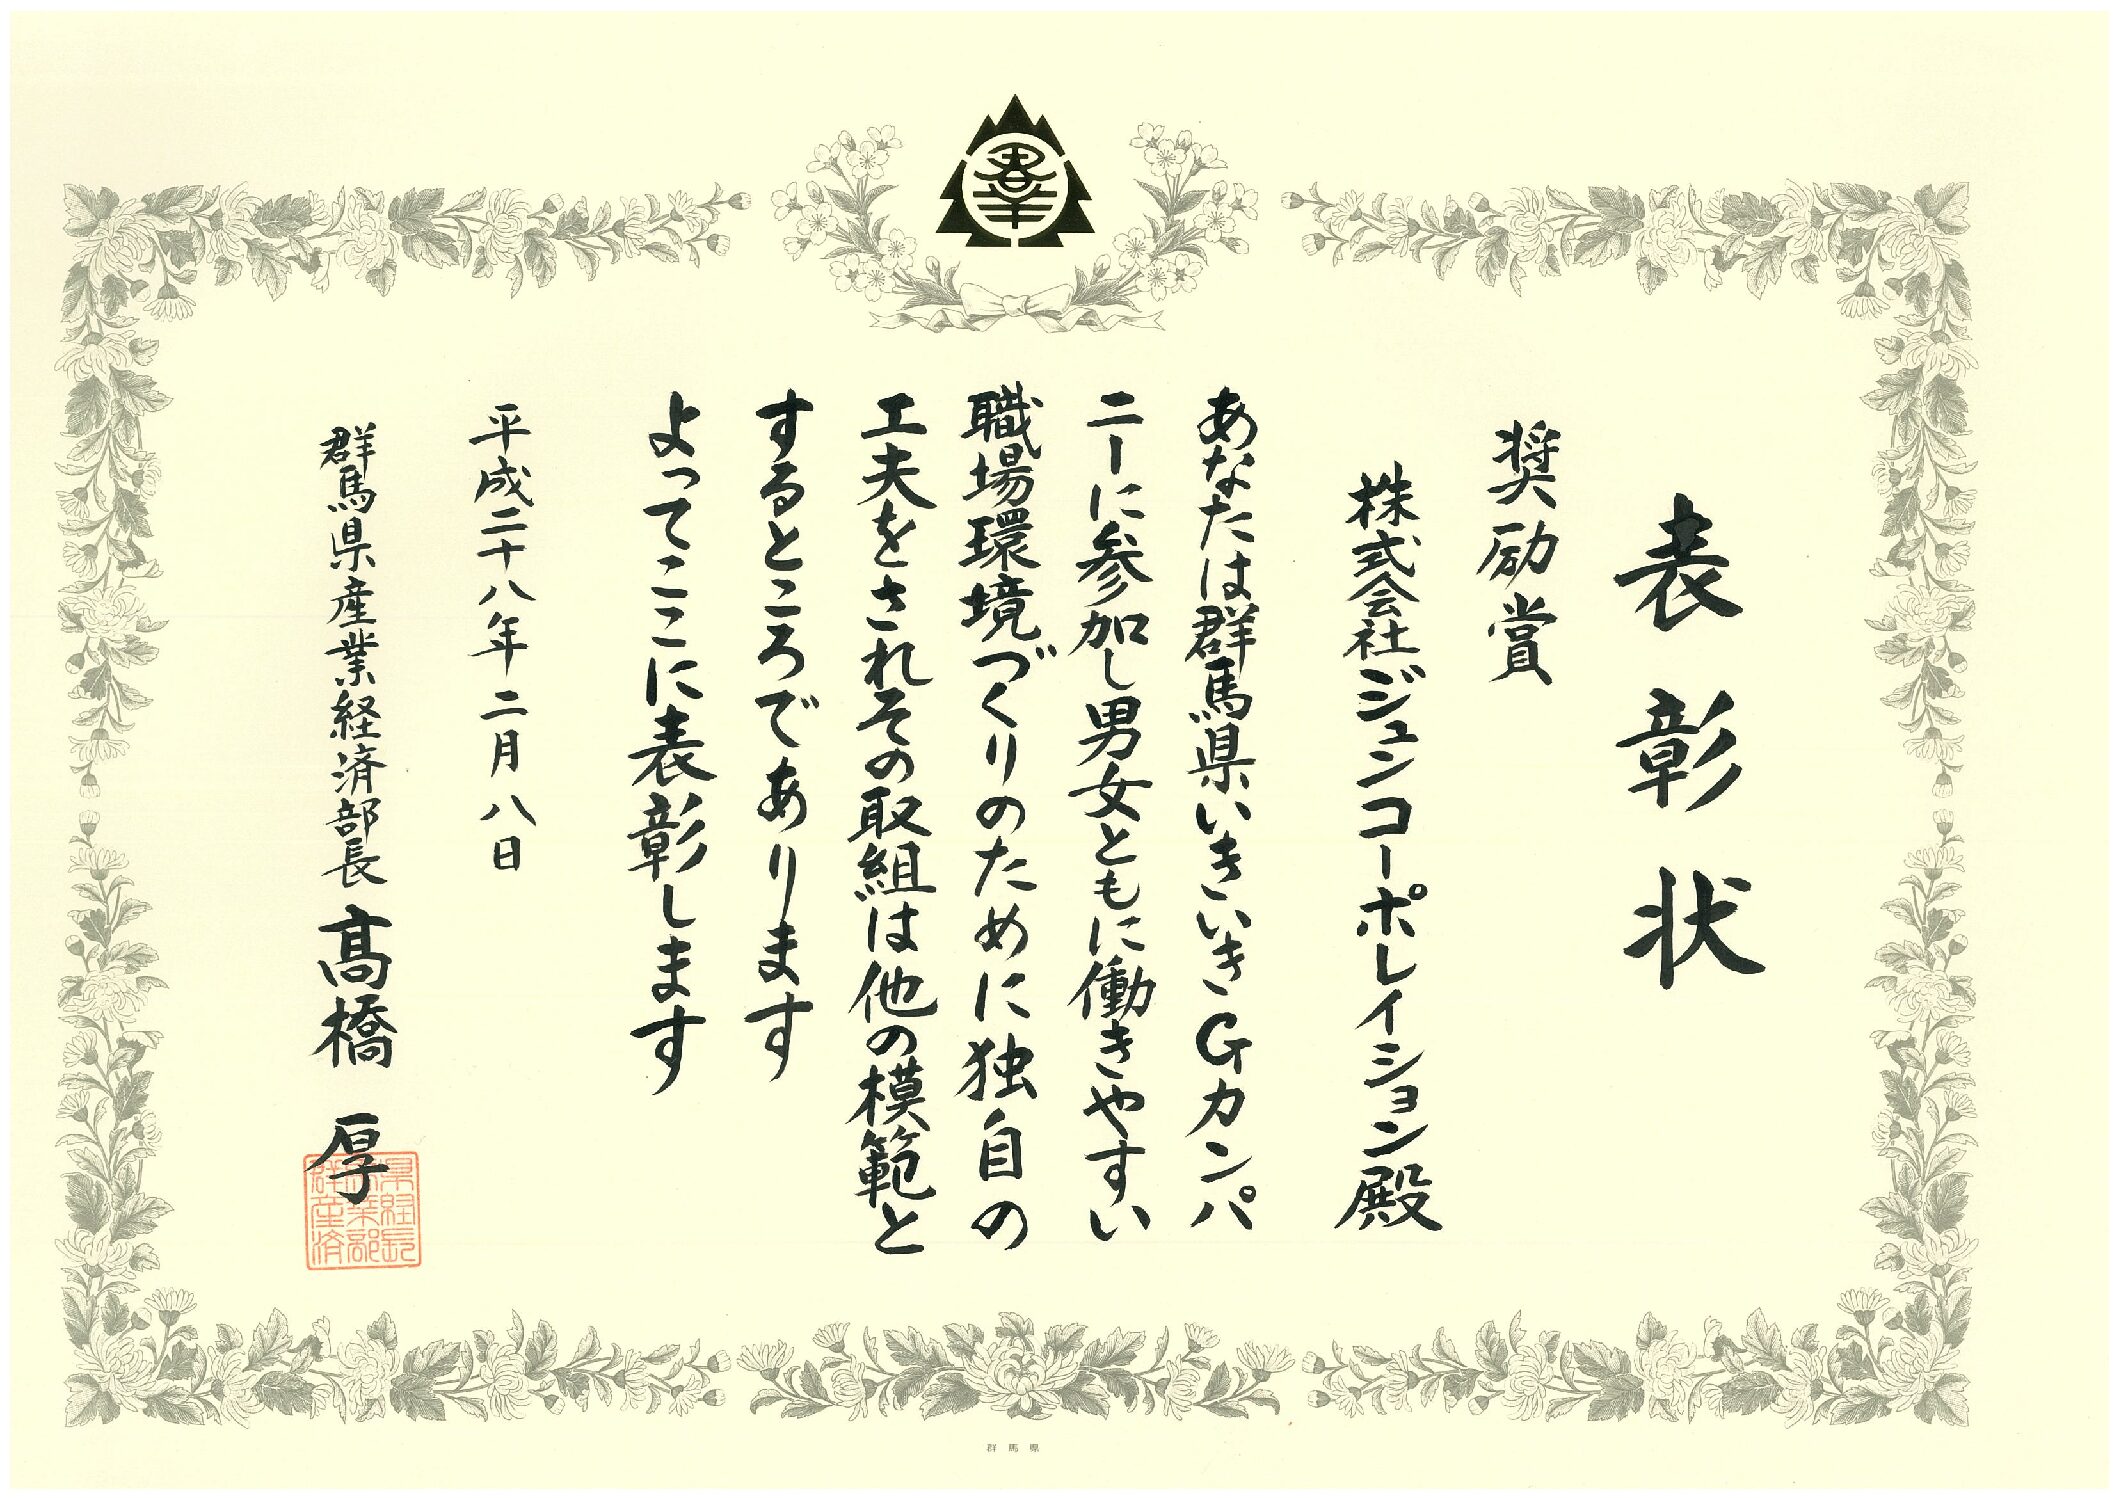 表彰状
奨励賞
株式会社ジュンコーポレイション殿
あなたは群馬県いきいきGカンパ
ニーに参加し男女ともに働きやすい
職場環境づくりのために独自の
工夫をされその取組は他の模範と
するところであります
よってここに表彰します
平成二十八年二月八日
群馬県産業経済部長 髙橋 厚
群馬県